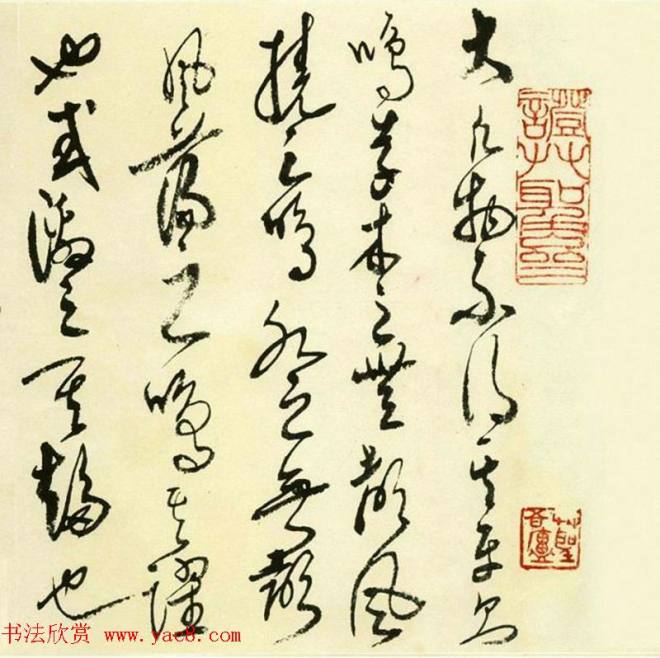 大凡物不得其平則
鳴草木之無聲風
撓之鳴水之無聲
風蕩之鳴其躍
也或激之其趨也
书法欣赏 www.yac8.com